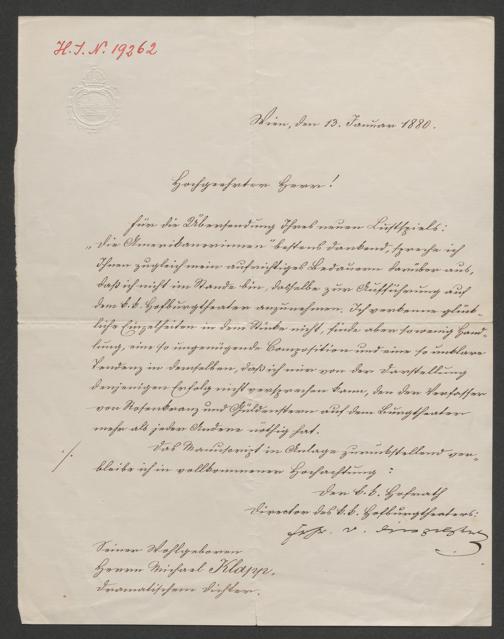 H. I. N. 19262
Wien, den 13. Januar 1880.
Hochgeehrter Herr!
Für die Übersendung Ihres neuen Lustspiels:
„Die Amerikanerinnen“ bestens dankend, spreche ich
Ihnen zugleich mein aufrichtiges Bedauern darüber aus,
daß ich nicht im Stande bin, dasselbe zur Aufführung auf
dem k. k. Hofburgtheater anzunehmen. Ich verkenne glück-
liche Einzelheiten in dem Stücke nicht, finde aber so wenig Hand-
lung, eine so ungenügende Composition und eine so unklare
Tendenz in demselben, daß ich mir von der Darstellung
denjenigen Erfolg nicht versprechen kann, den der Verfasser
von Rosenkranz und Güldenstern auf dem Burgtheater
mehr als jeder Andere nöthig hat.
Das Manuscript in Anlage zurückstellend ver-
bleibe ich in vollkommener Hochachtung:
Der k. k. Hofrath
Director des k. k. Hofburgtheaters:
Frhr. v. Dingelstedt
Seiner Wohlgeboren
Herrn Michael Klapp,
dramatischem Dichter.